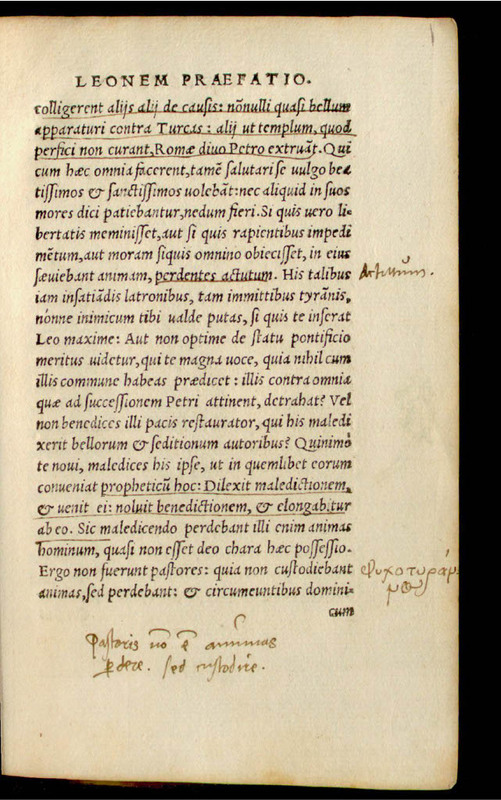 LEONEM PRAEFATIO.
colligerent alijs alij de causis: nõnulli quasi bellum
apparaturi contra Turcas: alij ut templum, quod
perfici non curant, Romæ diuo Petro extruãt. Qui
cum hæc omnia facerent, tamẽ salutari se uulgo bea
tissimos & sanctissimos uolebãt: nec aliquid in suos
mores dici patiebantur, nedum fieri. Si quis uero li-
bertatis meminisset, aut si quis rapientibus impedi
mẽtum, aut moram siquis omnino obiecisset, in eius
sæuiebant animam, perdentes actutum. His talibus
Actutum.
iam insatiãdis latronibus, tam immittibus tyrãnis,
nonne inimicum tibi ualde putas, si quis te inserat
Leo maxime: Aut non optime de statu pontificio
meritus uidetur, qui te magna uoce, quia nihil cum
illis commune habeas prædicet: illis contra omnia
quæ ad successionem Petri attinent, detrahat? Vel
non benedices illi pacis restaurator, qui his maledi
xerit bellorum & seditionum autoribus? Quinimo
te noui, maledices his ipse, ut in quemlibet eorum
conueniat propheticũ hoc: Dilexit maledictionem,
& uenit ei: noluit benedictionem, & elongabitur
ab eo. Sic maledicendo perdebant illi enim animas
hominum, quasi non esset deo chara hæc possessio.
Ergo non fuerunt pastores: quia non custodiebant
animas, sed perdebant: & circumeuntibus domini-
cum
Pastoris nõ ẽ animas
perdere. sed custodire.